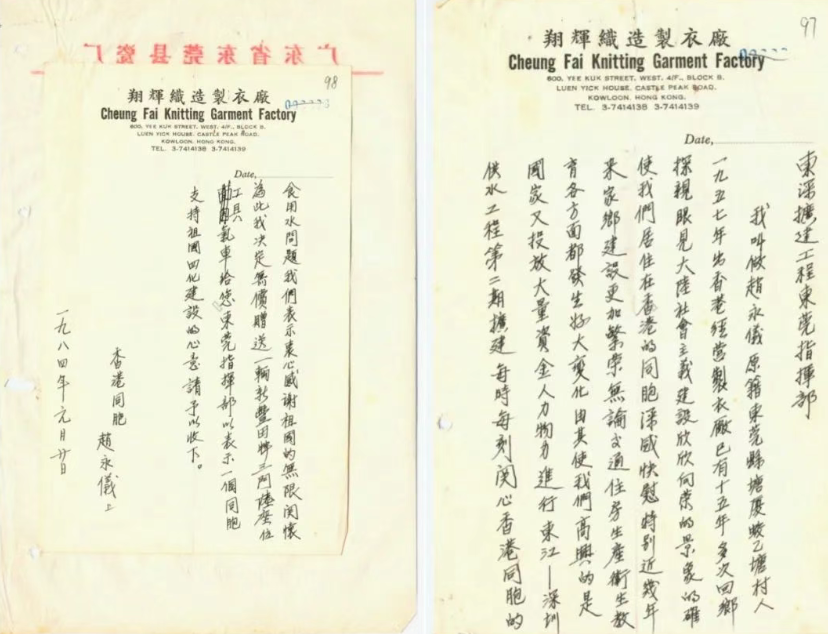 97
翔輝織造製衣廠
Cheung Fai Knitting Garment Factory
600, YEE KUK STREET, WEST, 4/F., BLOCK B,
LUEN YICK HOUSE, CASTLE PEAK ROAD,
KOWLOON, HONG KONG.
TEL. 3-7414138 3-7414139
Date,
東深擴建工程東莞指揮部
我叫做趙永儀原籍東莞縣塘廈蛟乙塘村人
一九五七年出香港經營製衣廠已有十五年多次回鄉
探親眼見大陸社會主義建設欣欣向荣的景象的確
使我們居住在香港的同胞深感快慰特别近幾年
来家鄉建設更加繁荣無論交通住房生產衛生教
育各方面都發生好大變化由其使我們高興的是
國家又投放大量資金人力物力進行東江—深圳
供水工程第二期擴建每時每刻関心香港同胞的
广东省东莞县瓷厂
98
翔輝織造製衣廠
Cheung Fai Knitting Garment Factory
600, YEE KUK STREET, WEST, 4/F., BLOCK B,
LUEN YICK HOUSE, CASTLE PEAK ROAD,
KOWLOON, HONG KONG.
TEL. 3-7414138 3-7414139
Date,
食用水問題我們表示衷心感謝祖國的無限関懷
為此我决定無償贈送一輛新豐田牌三門陸座位
工具氣車給您東莞指揮部以表示一個同胞
支持祖國四化建設的心意請予以收下。
香港同胞 趙永儀上
一九八四年元月廿日